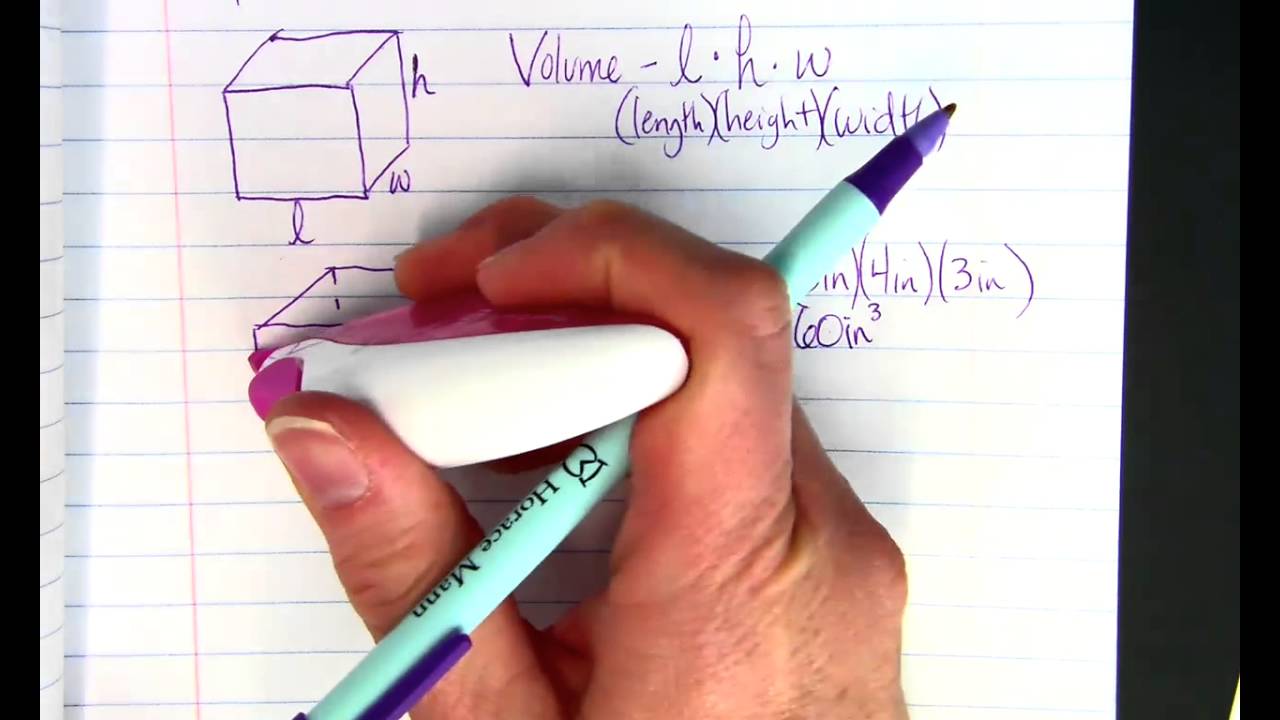 h
Volume - l · h · w
(length)(height)(width)
w
l
in)(4in)(3in)
60in³
Horace Mann